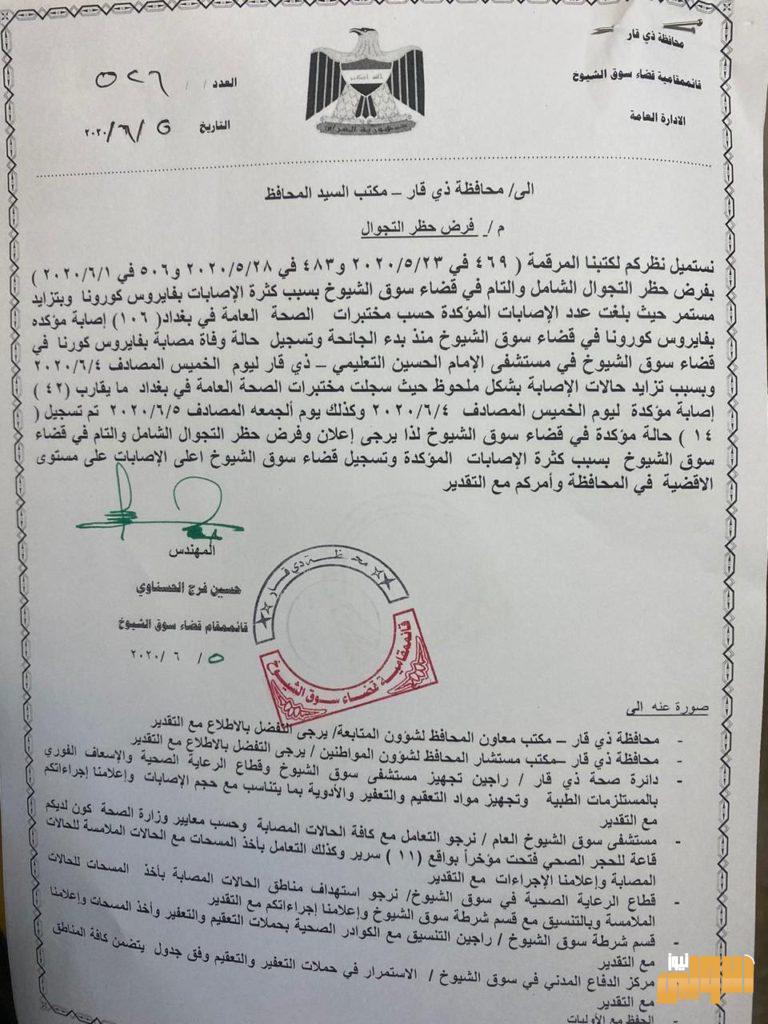 محافظة ذي قار
قائممقامية قضاء سوق الشيوخ
الادارة العامة
العدد / / ٥٢٦
التاريخ ٥/٦/٢٠٢٠
جمهورية العراق
الى/ محافظة ذي قار – مكتب السيد المحافظ
م / فرض حظر التجوال
نستميل نظركم لكتبنا المرقمة ( ٤٦٩ في ٢٠٢٠/٥/٢٣ و٤٨٣ في ٢٠٢٠/٥/٢٨ و٥٠٦ في ٢٠٢٠/٦/١ )
بفرض حظر التجوال الشامل والتام في قضاء سوق الشيوخ بسبب كثرة الإصابات بفايروس كورونا وبتزايد
مستمر حيث بلغت عدد الإصابات المؤكدة حسب مختبرات الصحة العامة في بغداد( ١٠٦ ) إصابة مؤكده
بفايروس كورونا في قضاء سوق الشيوخ منذ بدء الجائحة وتسجيل حالة وفاة مصابة بفايروس كورنا في
قضاء سوق الشيوخ في مستشفى الإمام الحسين التعليمي – ذي قار ليوم الخميس المصادف ٢٠٢٠/٦/٤
وبسبب تزايد حالات الإصابة بشكل ملحوظ حيث سجلت مختبرات الصحة العامة في بغداد ما يقارب ( ٤٢ )
إصابة مؤكدة ليوم الخميس المصادف ٢٠٢٠/٦/٤ وكذلك يوم ألجمعه المصادف ٢٠٢٠/٦/٥ تم تسجيل (
١٤ ) حالة مؤكدة في قضاء سوق الشيوخ لذا يرجى إعلان وفرض حظر التجوال الشامل والتام في قضاء
سوق الشيوخ بسبب كثرة الإصابات المؤكدة وتسجيل قضاء سوق الشيوخ اعلى الإصابات على مستوى
الاقضية في المحافظة وأمركم مع التقدير
المهندس
حسين فرج الحسناوي
قائممقام قضاء سوق الشيوخ
٥ / ٦ /٢٠٢٠
محافظة ذي قار
قائممقامية قضاء سوق الشيوخ
صورة عنه الى
- محافظة ذي قار – مكتب معاون المحافظ لشؤون المتابعة/ يرجى التفضل بالاطلاع مع التقدير
- محافظة ذي قار –مكتب مستشار المحافظ لشؤون المواطنين / يرجى التفضل بالاطلاع مع التقدير
- دائرة صحة ذي قار / راجين تجهيز مستشفى سوق الشيوخ وقطاع الرعاية الصحية والإسعاف الفوري
بالمستلزمات الطبية وتجهيز مواد التعقيم والتعفير والأدوية بما يتناسب مع حجم الإصابات وإعلامنا إجراءاتكم
مع التقدير
- مستشفى سوق الشيوخ العام / نرجو التعامل مع كافة الحالات المصابة وحسب معايير وزارة الصحة كون لديكم
قاعة للحجر الصحي فتحت مؤخراً بواقع (١١ ) سرير وكذلك التعامل بأخذ المسحات مع الحالات الملامسة للحالات
المصابة وإعلامنا الإجراءات مع التقدير
- قطاع الرعاية الصحية في سوق الشيوخ/ نرجو استهداف مناطق الحالات المصابة بأخذ المسحات للحالات
الملامسة وبالتنسيق مع قسم شرطة سوق الشيوخ وإعلامنا إجراءاتكم مع التقدير
- قسم شرطة سوق الشيوخ / راجين التنسيق مع الكوادر الصحية بحملات التعقيم والتعفير وأخذ المسحات وإعلامنا
مع التقدير
- مركز الدفاع المدني في سوق الشيوخ / الاستمرار في حملات التعفير والتعقيم وفق جدول يتضمن كافة المناطق
مع التقدير
- الحفظ مع الأوليات
نيوز